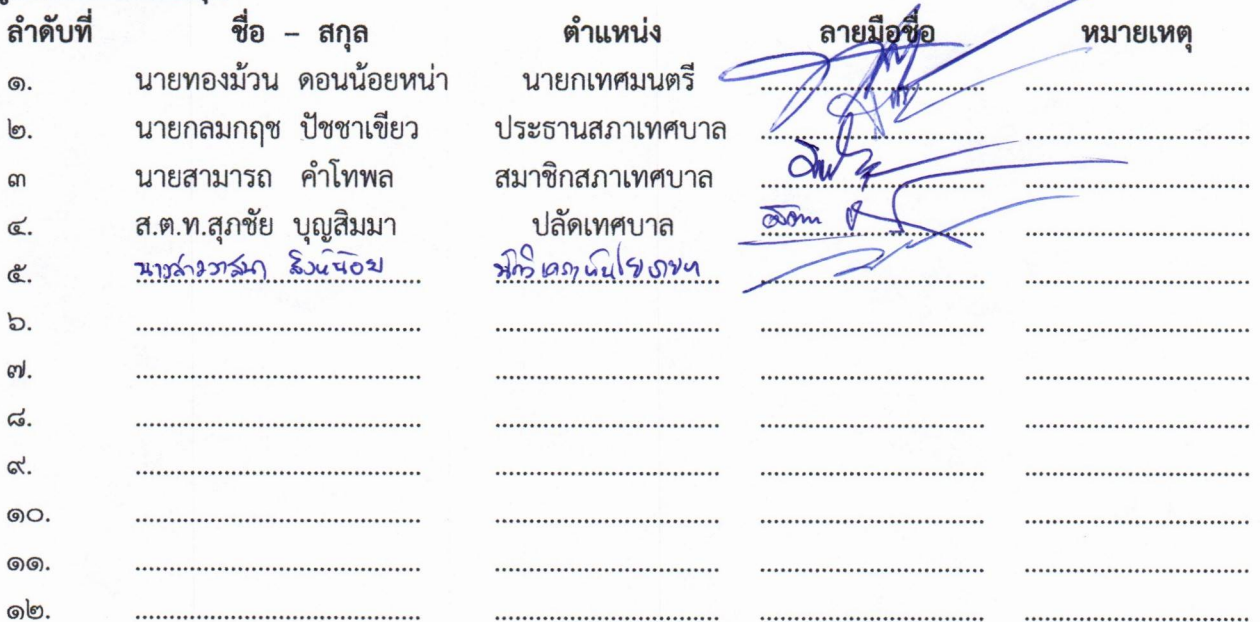 ลำดับที่ ชื่อ – สกุล ตำแหน่ง ลายมือชื่อ หมายเหตุ
๑. นายทองม้วน ดอนน้อยหน่า นายกเทศมนตรี
๒. นายกลมกฤช ปัชชาเขียว ประธานสภาเทศบาล
๓ นายสามารถ คำโทพล สมาชิกสภาเทศบาล
๔. ส.ต.ท.สุภชัย บุญสิมมา ปลัดเทศบาล
๕. นางสาววาสนา สิงห์น้อย นักวิเคราะห์นโยบายฯ
๖.
๗.
๘.
๙.
๑๐.
๑๑.
๑๒.